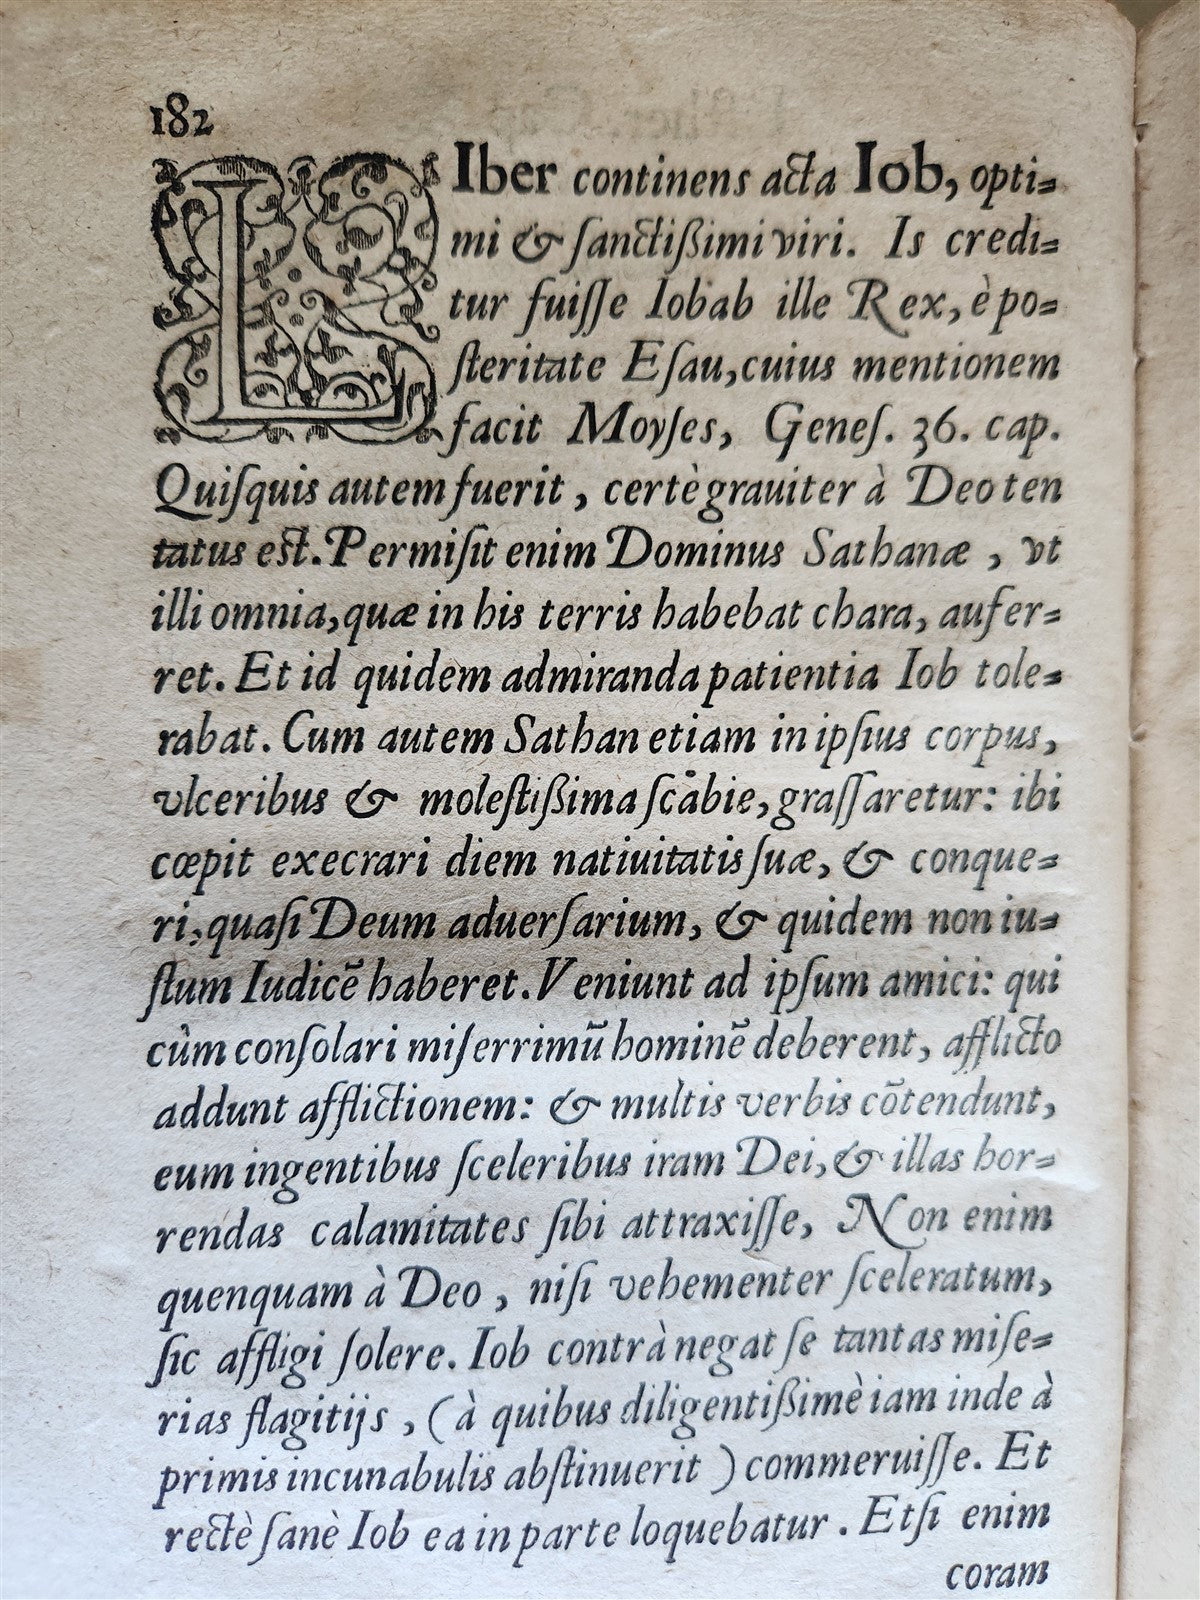 182
LIber continens acta Iob, opti=
mi & ſanctißimi viri. Is credi=
tur fuiſſe Iobab ille Rex, è po=
ſteritate Eſau, cuius mentionem
facit Moyſes, Geneſ. 36. cap.
Quiſquis autem fuerit, certè grauiter à Deo ten
tatus est. Permiſit enim Dominus Sathanæ, vt
illi omnia, quæ in his terris habebat chara, aufer=
ret. Et id quidem admiranda patientia Iob tole=
rabat. Cum autem Sathan etiam in ipſius corpus,
vlceribus & moleſtißima ſcabie, graſſaretur: ibi
cœpit execrari diem natiuitatis ſuæ, & conque=
ri, quaſi Deum aduerſarium, & quidem non iu=
ſtum Iudicē haberet. Veniunt ad ipſum amici: qui
cùm conſolari miſerrimū hominē deberent, afflicto
addunt afflictionem: & multis verbis cōtendunt,
eum ingentibus ſceleribus iram Dei, & illas hor=
rendas calamitates ſibi attraxiſſe, Non enim
quenquam à Deo, niſi vehementer ſceleratum,
ſic affligi ſolere. Iob contrà negat ſe tantas miſe=
rias flagitijs, (à quibus diligentißimè iam inde à
primis incunabulis abſtinuerit) commeruiſſe. Et
rectè ſanè Iob ea in parte loquebatur. Etſi enim
coram